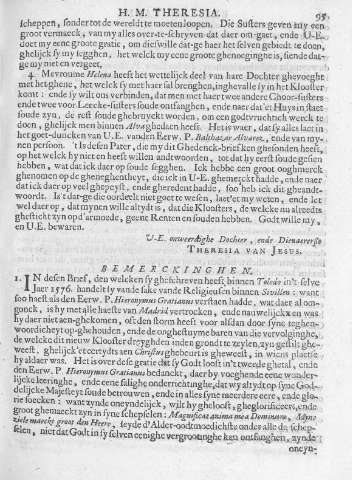 H. M. THERESIA. 95
scheppen, sonder tot de wereldt te moeten loopen. Die Susters geven my een
groot vermaeck, van my alles over-te-schryven dat daer om-gaet, ende U-E.
doet my eene groote gratie, om die swille dat-ge haer het selven gebiedt te doen,
ghelijck sy my segghen, het welck my eene groot ghenoeginghe is, siende dat-
ge my niet en vergeet.
4. Mevrouwe Helena heeft het wettelijck deel van hare Dochter ghevoeght
met het ghene, het welck sy met haer sal brenghen, ingheval le sy in het Klooster
komt: ende sy wilt oock verbinden, dat men met haer twee andere Choor-susters
ende twee voor Leecke-susters soude ontfanghen, ende naer dat 'et Huys in staet
soude zyn, de rest soude ghebruyckt worden, om een godtvruchtich werck te
doen, ghelijck men binnen Alva ghedaen heeft. Het is waer, dat sy alles laet in
het goet-duncken van U-E. van den Eerw. P. Balthazar Alvarez, ende van my-
nen persoon. 't Is desen Pater, die my dit Ghedenck-briefken ghesonden heeft,
op het welck hy niet en heeft willen andtwoorden, tot dat hy eerst soude gesien
hebben, wat dat ick daer op soude segghen. Ick hebbe een groot ooghmerck
ghenomen op de ghenegentheyt, die ick in U-E. ghemerckt hadde, ende naer
dat ick daer op veel ghepeyst, ende gheredent hadde, soo heb ick dit ghеandt-
woordt. Is 't dat-ge die oordeelt niet goet te wesen, laet 'et my weten, ende let
wel daer op, dat mynen wille altydt is, dat die Kloosters, de welcke nu alreedts
ghesticht zyn op d'armoede, geene Renten en souden hebben. Godt wil le my,
en U-E. bewaren.
U-E. onweerdighe Dochter, ende Dienaersse
THERESIA VAN JESUS.
BEMERCKINGHEN.
1. IN desen Brief, den welcken sy gheschreven heeft binnen Toledo in 't selve
Jaer 1576. handelt sy van de sake vande Religieusen binnen Sivillen: want
soo haest als den Eerw. P. Hieronymus Gratianus verstaen hadde, wat daer al om-
gonck, is hy met alle haeste van Madrid vertrocken, ende nauwelijckx en was
hy daer niet aen-ghekomen, oft den storm heeft voor alsdan door syne teghen-
woordicheyt op-ghehouden, ende de onghestuyme baren van die vervolginghe,
de welcke dit nieuw Klooster dreyghden anden grondt te zeylen, zyn gestilt ghe-
weest, ghelijck 't eertydts aen Christus ghebeurt is gheweest, in wiens plaetse
hy aldaer was. Het is over dese gratie dat sy Godt looft in 't tweede ghetal, ende
den Eerw. P. Hieronymus Gratianus bedanckt, daer by voeghende eene wonder-
lijcke leeringhe, ende eene salighe onderrichtinghe, dat wy altydt op syne God-
delijcke Majesteyt soude betrouwen, ende in alles syne naerdere eere, ende glo-
rie soecken: want zynde oneyndelijck, wilt hy ghelooft, ghegloorificeert, ende
groot ghemaeckt zyn in syne schepselen: Magnificat anima mea Dominum, Myne
ziele maeckt groot den Heere, seyde d'Alder-oodtmoedichste onder alle de schep-
selen, niet dat Godt in sy selven eenighe vergrootinghe kan ontfanghen, zynde
oneyn-